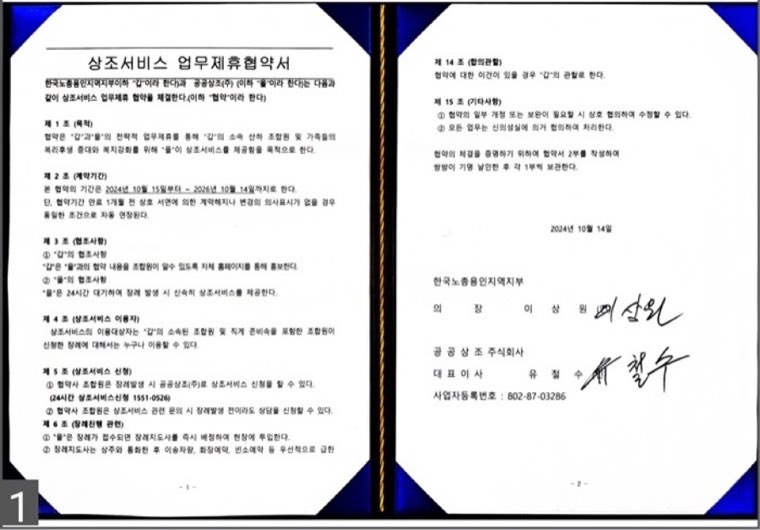 상조서비스 업무제휴협약서
한국노총용인지역지부이하 "갑"이라 한다)과 공공상조(주) (이하 "을"이라 한다)는 다음과
같이 상조서비스 업무제휴 협약을 체결한다.(이하 "협약"이라 한다)
제 1 조 (목적)
협약은 "갑"과"을"의 전략적 업무제휴를 통해 "갑"의 소속 산하 조합원 및 가족들의
복리후생 증대와 복지강화를 위해 "을"이 상조서비스를 제공함을 목적으로 한다.
제 2 조 (계약기간)
본 협약의 기간은 2024년 10월 15일부터 ~ 2026년 10월 14일까지로 한다.
단, 협약기간 만료 1개월 전 상호 서면에 의한 계약해지나 변경의 의사표시가 없을 경우
동일한 조건으로 자동 연장된다.
제 3 조 (협조사항)
① "갑"의 협조사항
"갑"은 "을"과의 협약 내용을 조합원이 알수 있도록 자체 홈페이지를 통해 홍보한다.
② "을"의 협조사항
"을"은 24시간 대기하여 장례 발생 시 신속히 상조서비스를 제공한다.
제 4 조 (상조서비스 이용자)
상조서비스의 이용대상자는 "갑"의 소속된 조합원 및 직계 존비속을 포함한 조합원이
신청한 장례에 대해서는 누구나 이용할 수 있다.
제 5 조 (상조서비스 신청)
① 협약사 조합원은 장례발생 시 공공상조(주)로 상조서비스 신청을 할 수 있다.
(24시간 상조서비스신청 1551-0526)
② 협약사 조합원은 상조서비스 관련 문의 시 장례발생 전이라도 상담을 신청할 수 있다.
제 6 조 (장례진행 관련)
① "을"은 장례가 접수되면 장례지도사를 즉시 배정하여 현장에 투입한다.
② 장례지도사는 상주와 통화한 후 이송차량, 화장예약, 빈소예약 등 우선적으로 급한
- 1 -
1
제 14 조 (합의관할)
협약에 대한 이견이 있을 경우 "갑"의 관할로 한다.
제 15 조 (기타사항)
① 협약의 일부 개정 또는 보완이 필요할 시 상호 협의하여 수정할 수 있다.
② 모든 업무는 신의성실에 의거 협의하여 처리한다.
협약의 체결을 증명하기 위하여 협약서 2부를 작성하여
쌍방이 기명 날인한 후 각 1부씩 보관한다.
2024년 10월 14일
한국노총용인지역지부
의 장 이 상 원 이상원
공 공 상 조 주식회사
대 표 이 사 유 철 수 유철수
사업자등록번호 : 802-87-03286
- 2 -